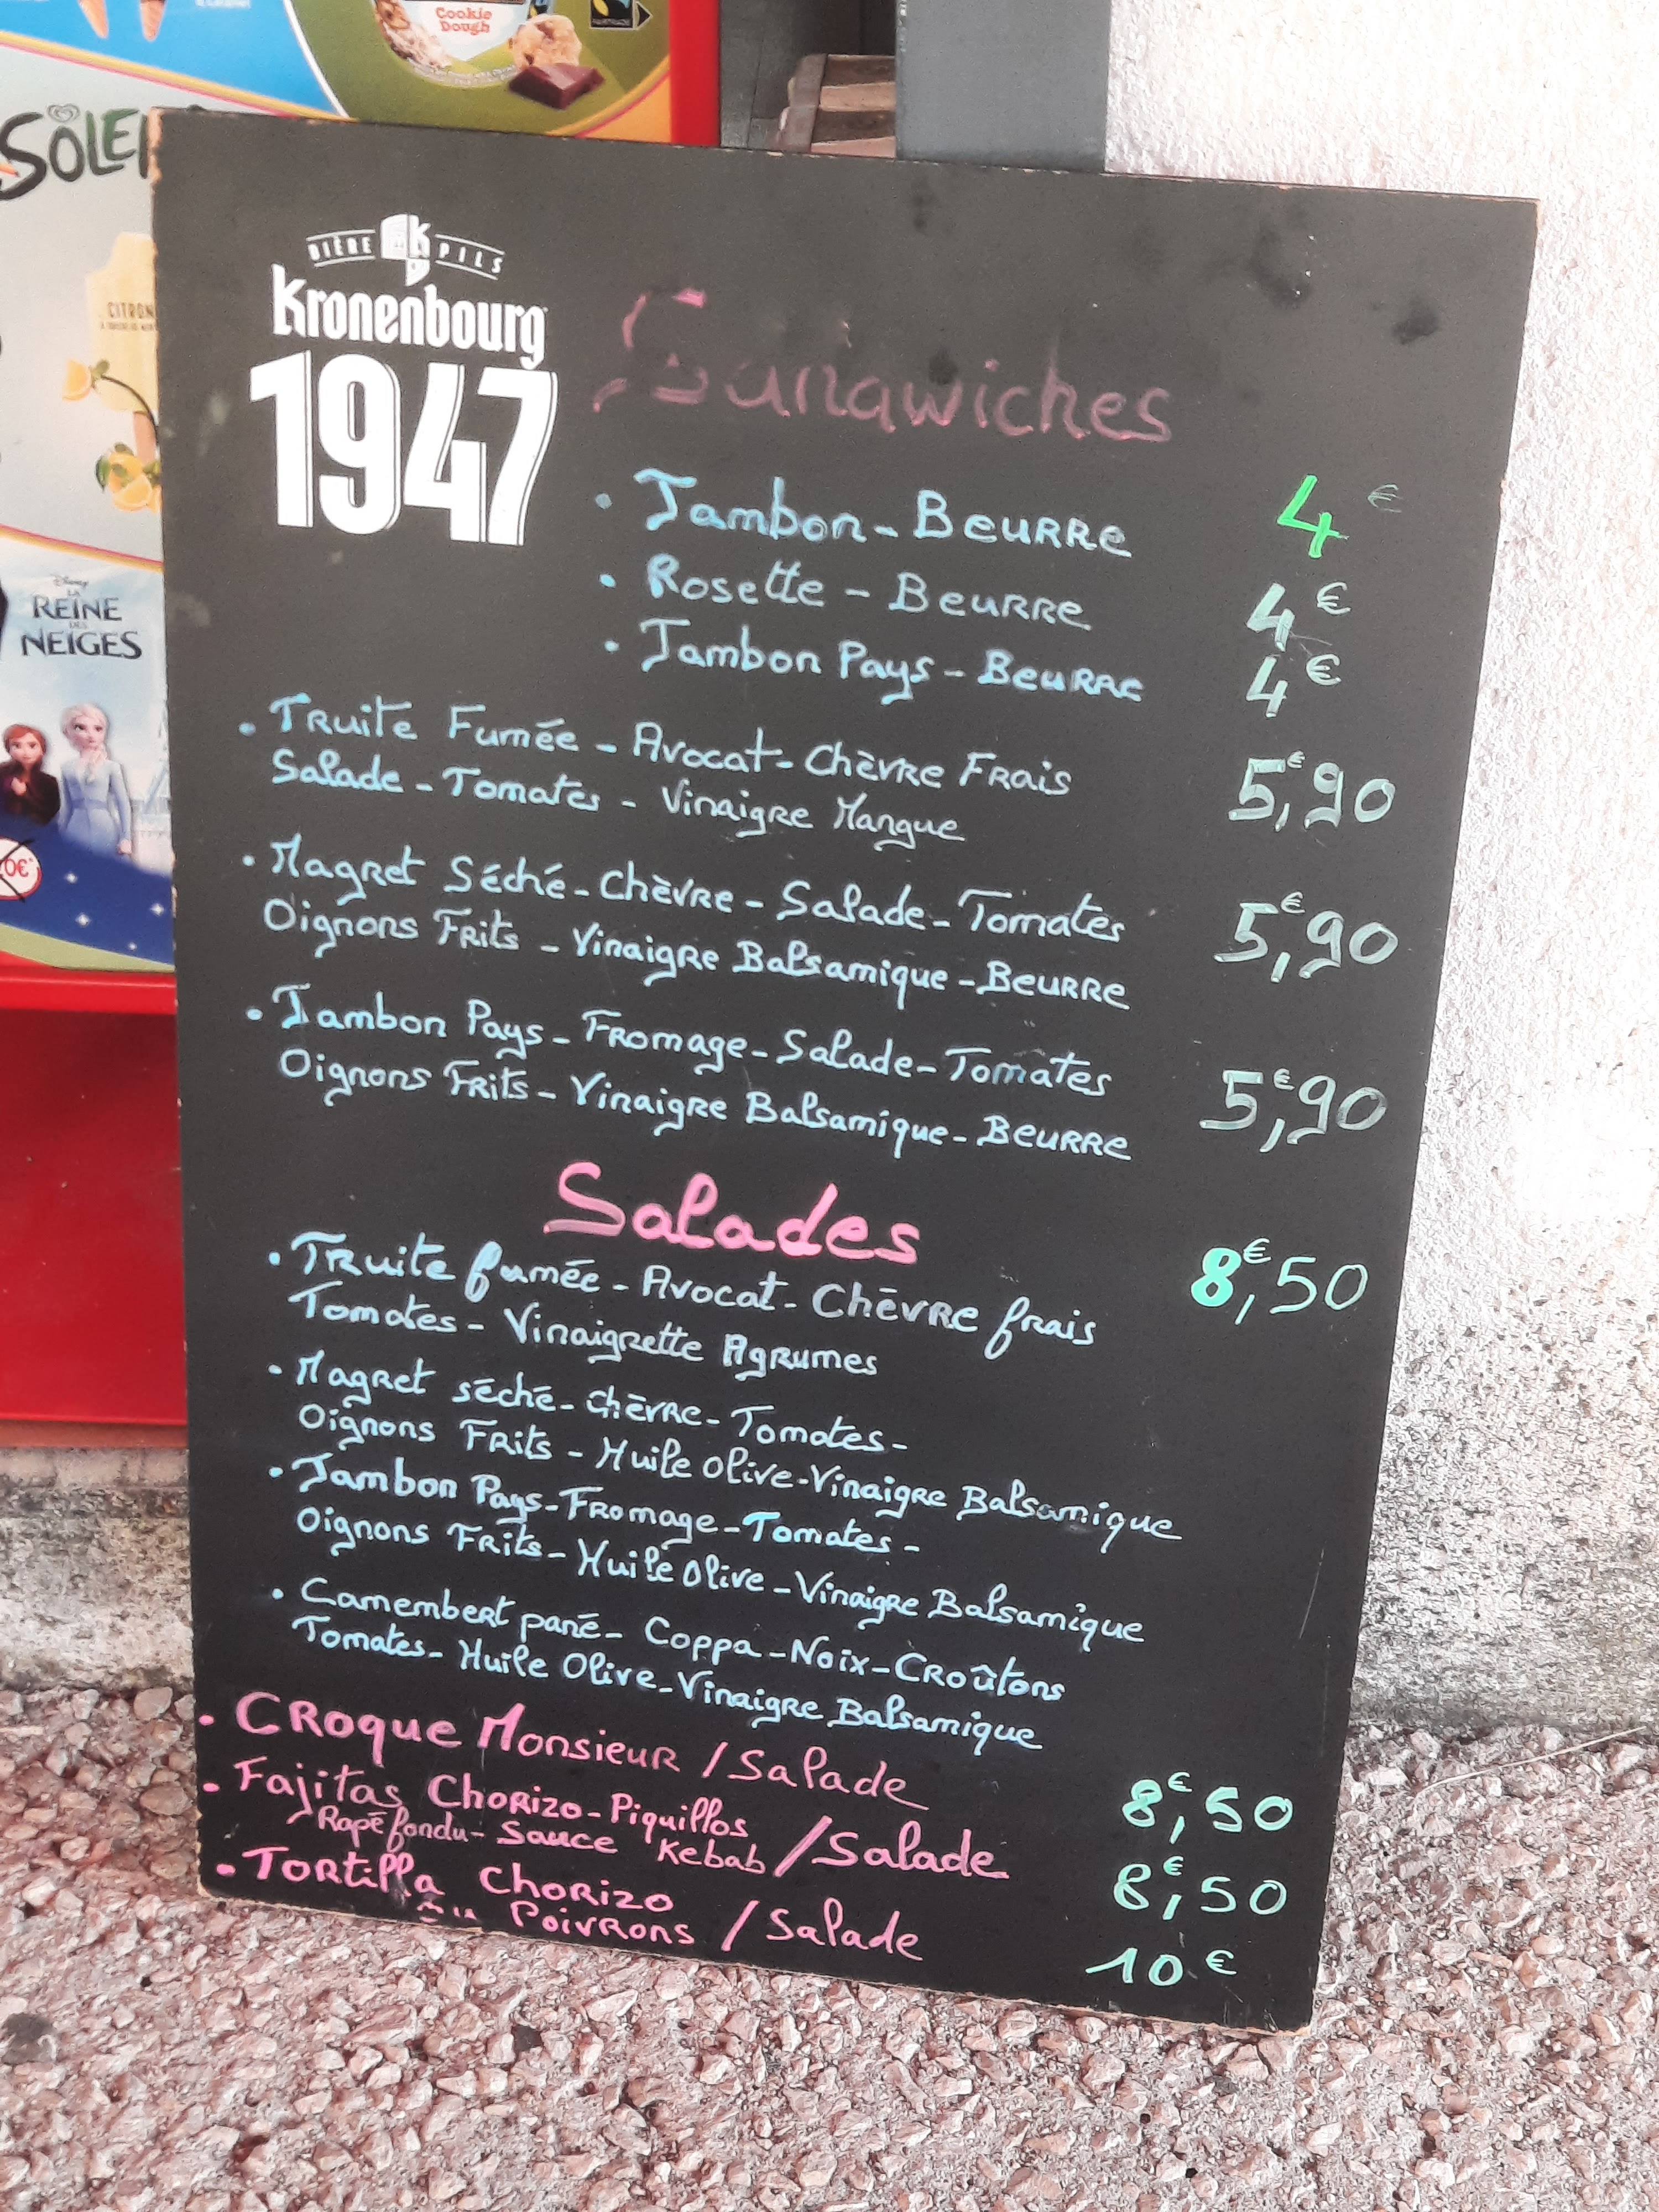 Cookie
Dough
SOLE
CITRON
Disney
LA
REINE
DES
NEIGES
0€
BIÈRE PILS
Kronenbourg
1947
Sandwiches
• Jambon - Beurre 4€
• Rosette - Beurre 4€
• Jambon Pays - Beurre 4€
• Truite Fumée - Avocat - Chèvre Frais
Salade - Tomates - Vinaigre Mangue 5,€90
• Magret Séché - Chèvre - Salade - Tomates
Oignons Frits - Vinaigre Balsamique - Beurre 5,€90
• Jambon Pays - Fromage - Salade - Tomates
Oignons Frits - Vinaigre Balsamique - Beurre 5,€90
Salades 8,€50
• Truite fumée - Avocat - Chèvre frais
Tomates - Vinaigrette Agrumes
• Magret séché - Chèvre - Tomates -
Oignons Frits - Huile Olive - Vinaigre Balsamique
• Jambon Pays - Fromage - Tomates -
Oignons Frits - Huile Olive - Vinaigre Balsamique
• Camembert pané - Coppa - Noix - Croûtons
Tomates - Huile Olive - Vinaigre Balsamique
• Croque Monsieur / Salade 8,€50
• Fajitas Chorizo - Piquillos
Rapé fondu - Sauce Kebab / Salade 8,€50
• Tortilla Chorizo
ou Poivrons / Salade 10€